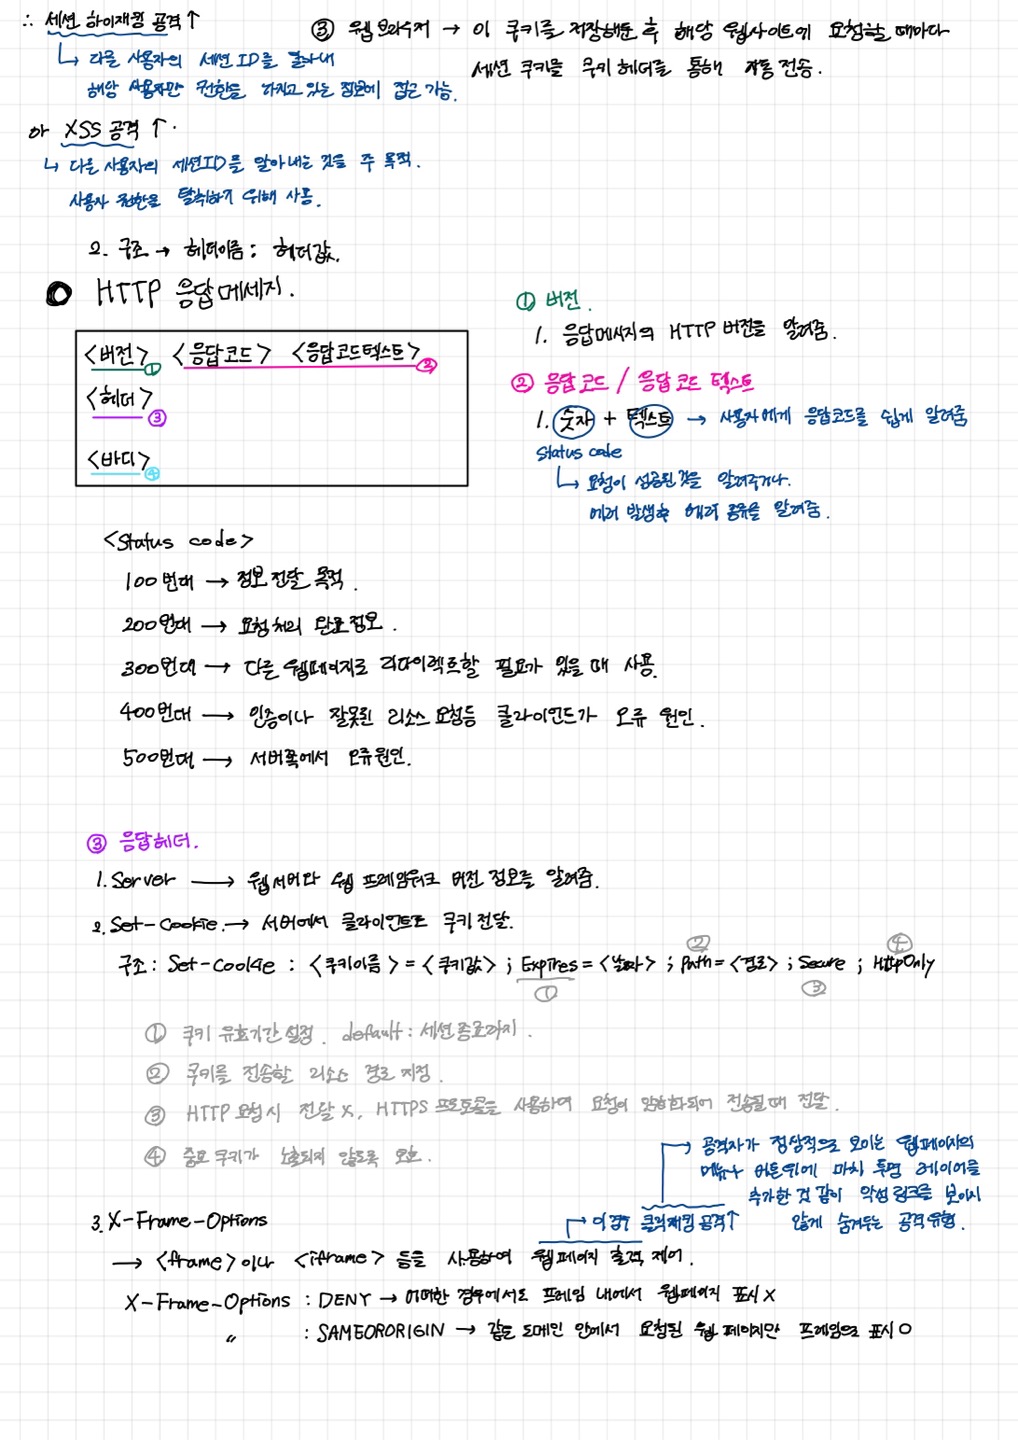 ∴ 세션 하이재킹 공격↑
↳ 다른 사용자의 세션ID를 알아내
해당 사용자만 권한을 가지고 있는 정보에 접근 가능.
③ 웹 브라우저 → 이 쿠키를 저장해둔 후 해당 웹사이트에 요청할 때마다
세션 쿠키를 쿠키 헤더를 통해 자동 전송.
XSS 공격↑.
↳ 다른 사용자의 세션ID를 알아내는 것을 주 목적.
사용자 권한을 탈취하기 위해 사용.
2. 구조 → 헤더이름 : 헤더값.
HTTP 응답메세지.
<버전>① <응답코드> <응답코드텍스트>②
<헤더>③
<바디>④
① 버전.
1. 응답메시지의 HTTP 버전을 알려줌.
② 응답코드 / 응답코드 텍스트
1. 숫자 + 텍스트 → 사용자에게 응답코드를 쉽게 알려줌
Status code
↳ 요청이 성공된것을 알려주거나.
에러 발생후 에러 종류를 알려줌.
<Status code>
100번대 → 정보 전달 목적.
200번대 → 요청처리 완료 정보.
300번대 → 다른 웹페이지로 리다이렉트할 필요가 있을 때 사용.
400번대 → 인증이나 잘못된 리소스 요청등 클라이언트가 오류 원인.
500번대 → 서버쪽에서 오류원인.
③ 응답헤더.
1. Server → 웹서버나 웹 프레임워크 버전 정보를 알려줌.
2. Set-Cookie → 서버에서 클라이언트로 쿠키 전달.
② ④
구조 : Set-Cookie : <쿠키이름> = <쿠키값> ; Expires = <날짜> ; Path = <경로> ; Secure ; HttpOnly
① ③
① 쿠키 유효기간 설정. default : 세션종료까지.
② 쿠키를 전송할 리소스 경로 지정.
③ HTTP 요청시 전달 X, HTTPS 프로토콜을 사용하여 요청이 암호화되어 전송될때 전달.
④ 중요 쿠키가 노출되지 않도록 보호.
→ 공격자가 정상적으로 보이는 웹페이지의
메뉴나 버튼위에 마치 투명 레이어를
추가한 것 같이 악성링크를 보이지
않게 숨겨두는 공격유형.
3. X-Frame-Options
→ 이경우 클릭재킹 공격↑
→ <frame>이나 <iframe> 등을 사용하여 웹페이지 출력 제어.
X-Frame-Options : DENY → 어떠한 경우에서도 프레임 내에서 웹페이지 표시 X
〃 : SAMEORORIGIN → 같은 도메인 안에서 요청된 웹 페이지만 프레임으로 표시 O